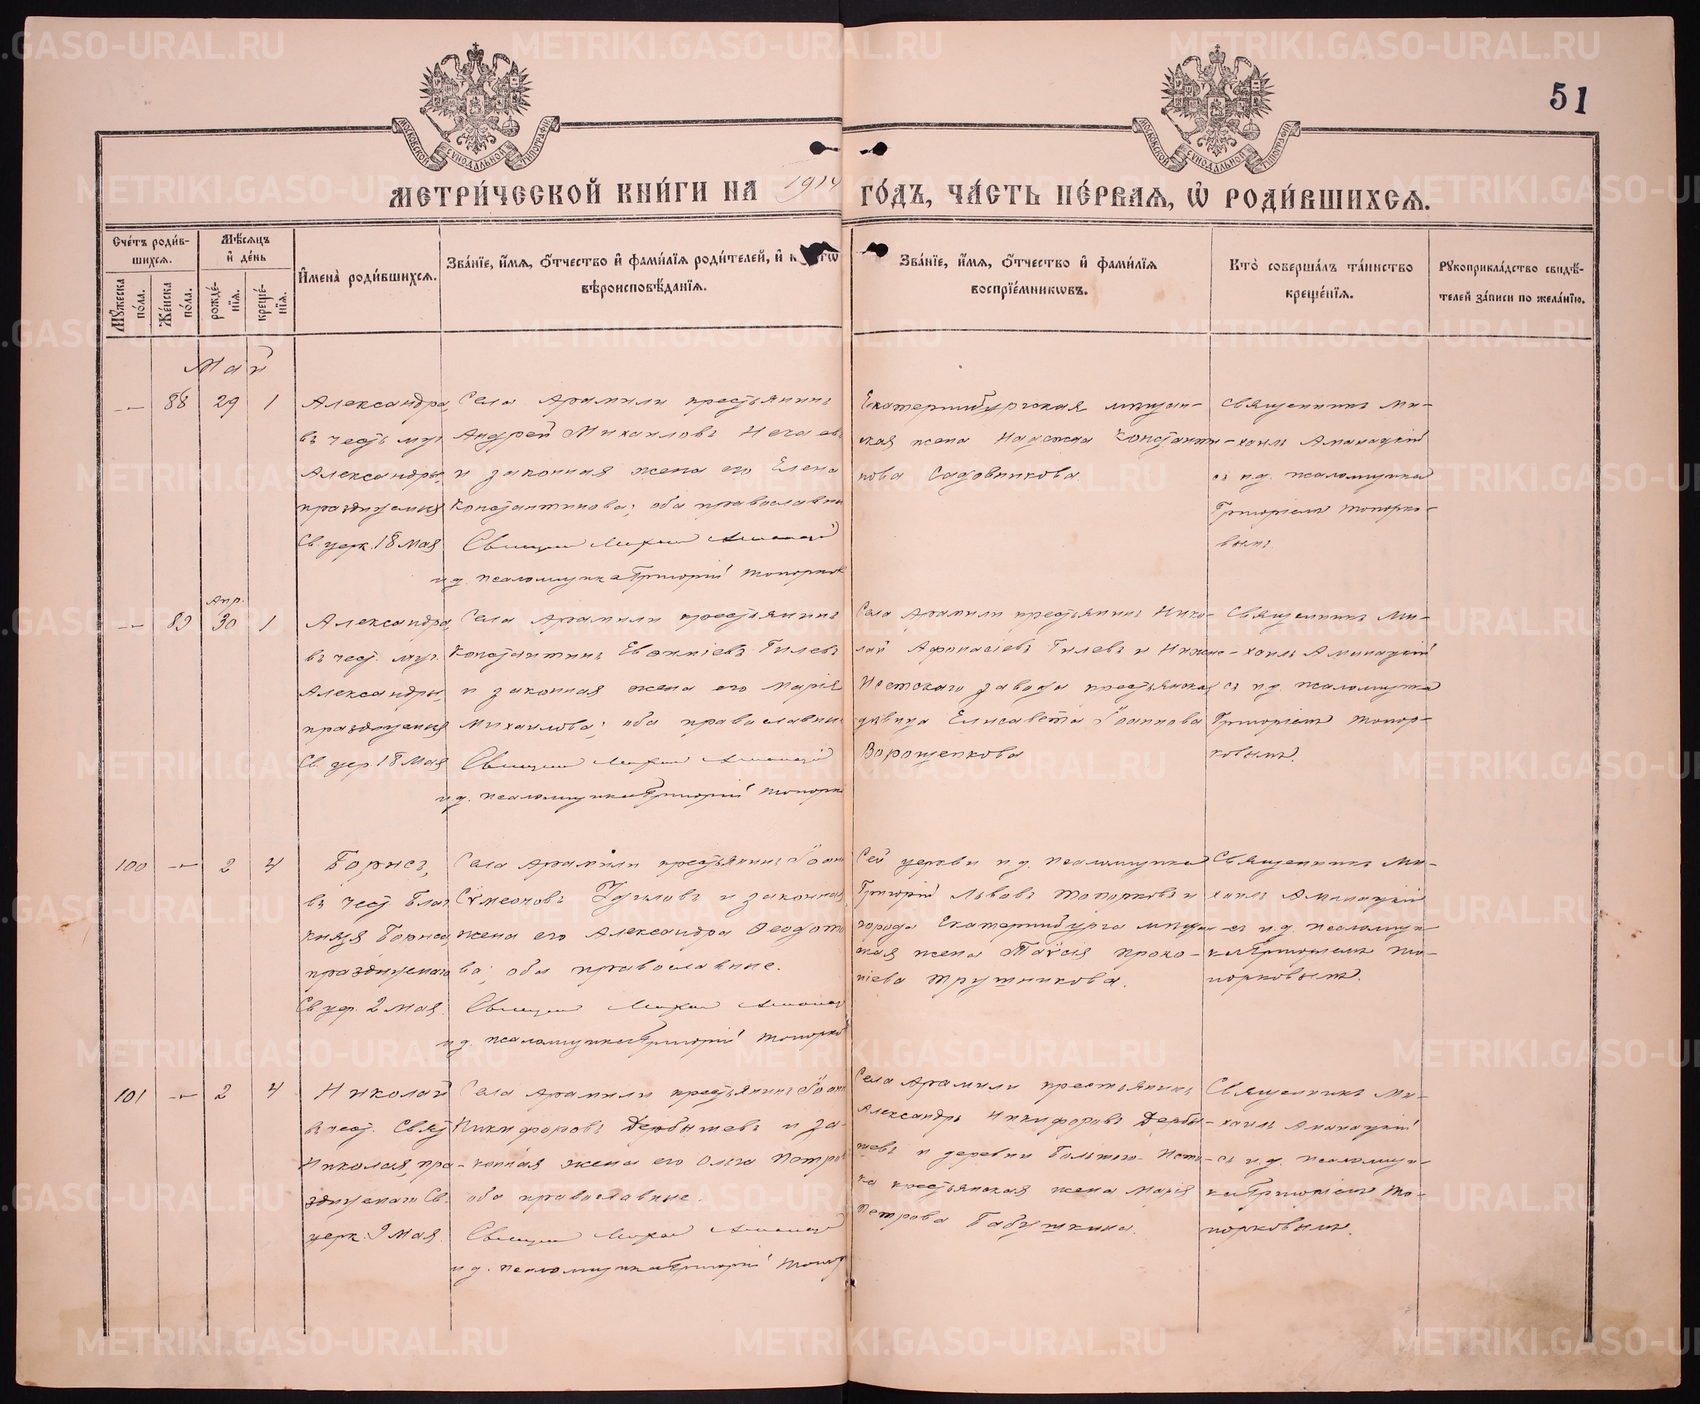 51
МЕТРИ́ЧЕСКОЙ КНИ́ГИ НА 1914 ГО́ДЪ, ЧА́СТЬ ПЕ́РВАѦ, Ѡ҆ РОДИ́ВШИХСѦ.
Сче́тъ роди́в-
шихсѧ.
Мѣ́сѧцъ
и҆ де́нь
Му́жеска
по́ла.
Же́нска
по́ла.
рожде́-
нїѧ.
креще́-
нїѧ.
И҆мена̀ роди́вшихсѧ.
Зва́нїе, и҆́мѧ, ѻ҆́тчество и҆ фами́лїѧ роди́телей, и҆
вѣроисповѣ́данїѧ.
Зва́нїе, и҆́мѧ, ѻ҆́тчество и҆ фами́лїѧ
воспрїе́мникѡвъ.
Кто̀ соверша́лъ та́инство
креще́нїѧ.
Рꙋкоприкла́дство свидѣ́-
телей за́писи по жела́нїю.
Май
— 88 29 1
Александра,
въ честь муч.
Александры,
празднуемыя
Св. церк. 18 Мая
Села Арамили крестьянинъ
Андрей Михаиловъ
и законная жена его Елена
Константинова; оба православные
Священникъ Михаилъ
и.д. псаломщика Григорій Топорков
Екатеринбургская мѣщан-
ская жена Надежда Константи-
нова Садовникова.
Священникъ Ми-
хаилъ
съ и.д. псаломщика
Григоріемъ Топорко-
вымъ.
— 89 Апр. 30 1
Александра,
въ чест. муч.
Александры,
празднуемыя
Св. цер. 18 Мая
Села Арамили крестьянинъ
Константинъ Евфиміевъ Гилевъ
и законная жена его Марія
Михаилова; оба православные
Священникъ Михаилъ
и.д. псаломщика Григорій Топорк
Села Арамили крестьянинъ Нико-
лай Афонасіевъ Гилевъ и Нижне-
Исетскаго завода крестьянская
дѣвица Елисавета Іоаннова
Ворощенкова
Священникъ Ми-
хаилъ
съ и.д. псаломщика
Григоріемъ Топор-
ковымъ.
100 — 2 4
Борисъ,
въ чест. Благ.
Князя Бориса,
празднуемаго
Св. цер. 2 Мая.
Села Арамили крестьянинъ Іоанн
Сѵмеоновъ и законная
жена его Александра Феодото
ва; оба православные.
Священникъ Михаилъ
и.д. псаломщика Григорій Топорков
Сей церкви и.д. псаломщика
Григорій Львовъ Топорковъ и
города Екатеринбурга мѣщан-
ская жена Таисія Проко-
піева Трушникова.
Священникъ Ми-
хаилъ
съ и.д. псаломщи-
ка Григоріемъ То-
порковымъ.
101 — 2 4
Николай
въ чест. Свят.
Николая, пра-
зднуемаго Св.
церк. 9 Мая.
Села Арамили крестьянинъ Іоанн
Никифоровъ Дербышевъ и за-
конная жена его Ольга Петров
оба православные.
Священникъ Михаилъ
и.д. псаломщика Григорій Топор
Села Арамили крестьянинъ
Александръ Никифоровъ Дербы-
шевъ и деревни Большого Исто-
ка крестьянская жена Марія
Петрова Бабушкина.
Священникъ Ми-
хаилъ
съ и.д. псаломщи-
ка Григоріемъ То-
порковымъ.